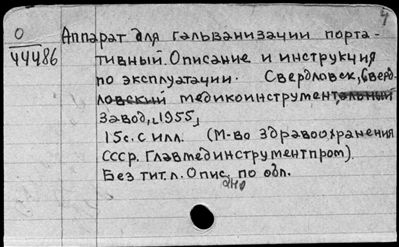 4
О
44486
Аппарат для гальванизации порта-
тивный. Описание и инструкция
по эксплуатации. Свердловск, Сверд-
ловский медикоинструментальный
завод, 1955,
15с. с илл. (М-во здравоохранения
СССР. Главмединструментпром).
Без тит. л. Опис. по обл.